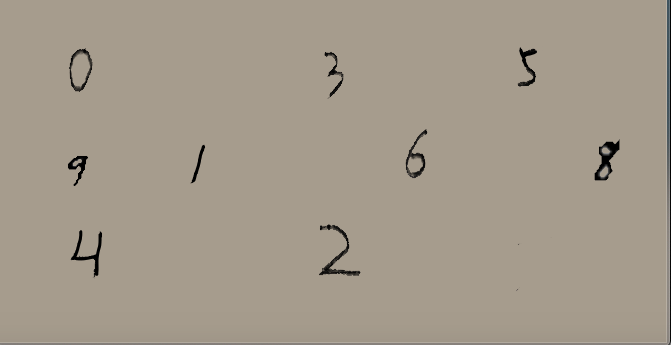 0 3 5
9 1 6 8
4 2